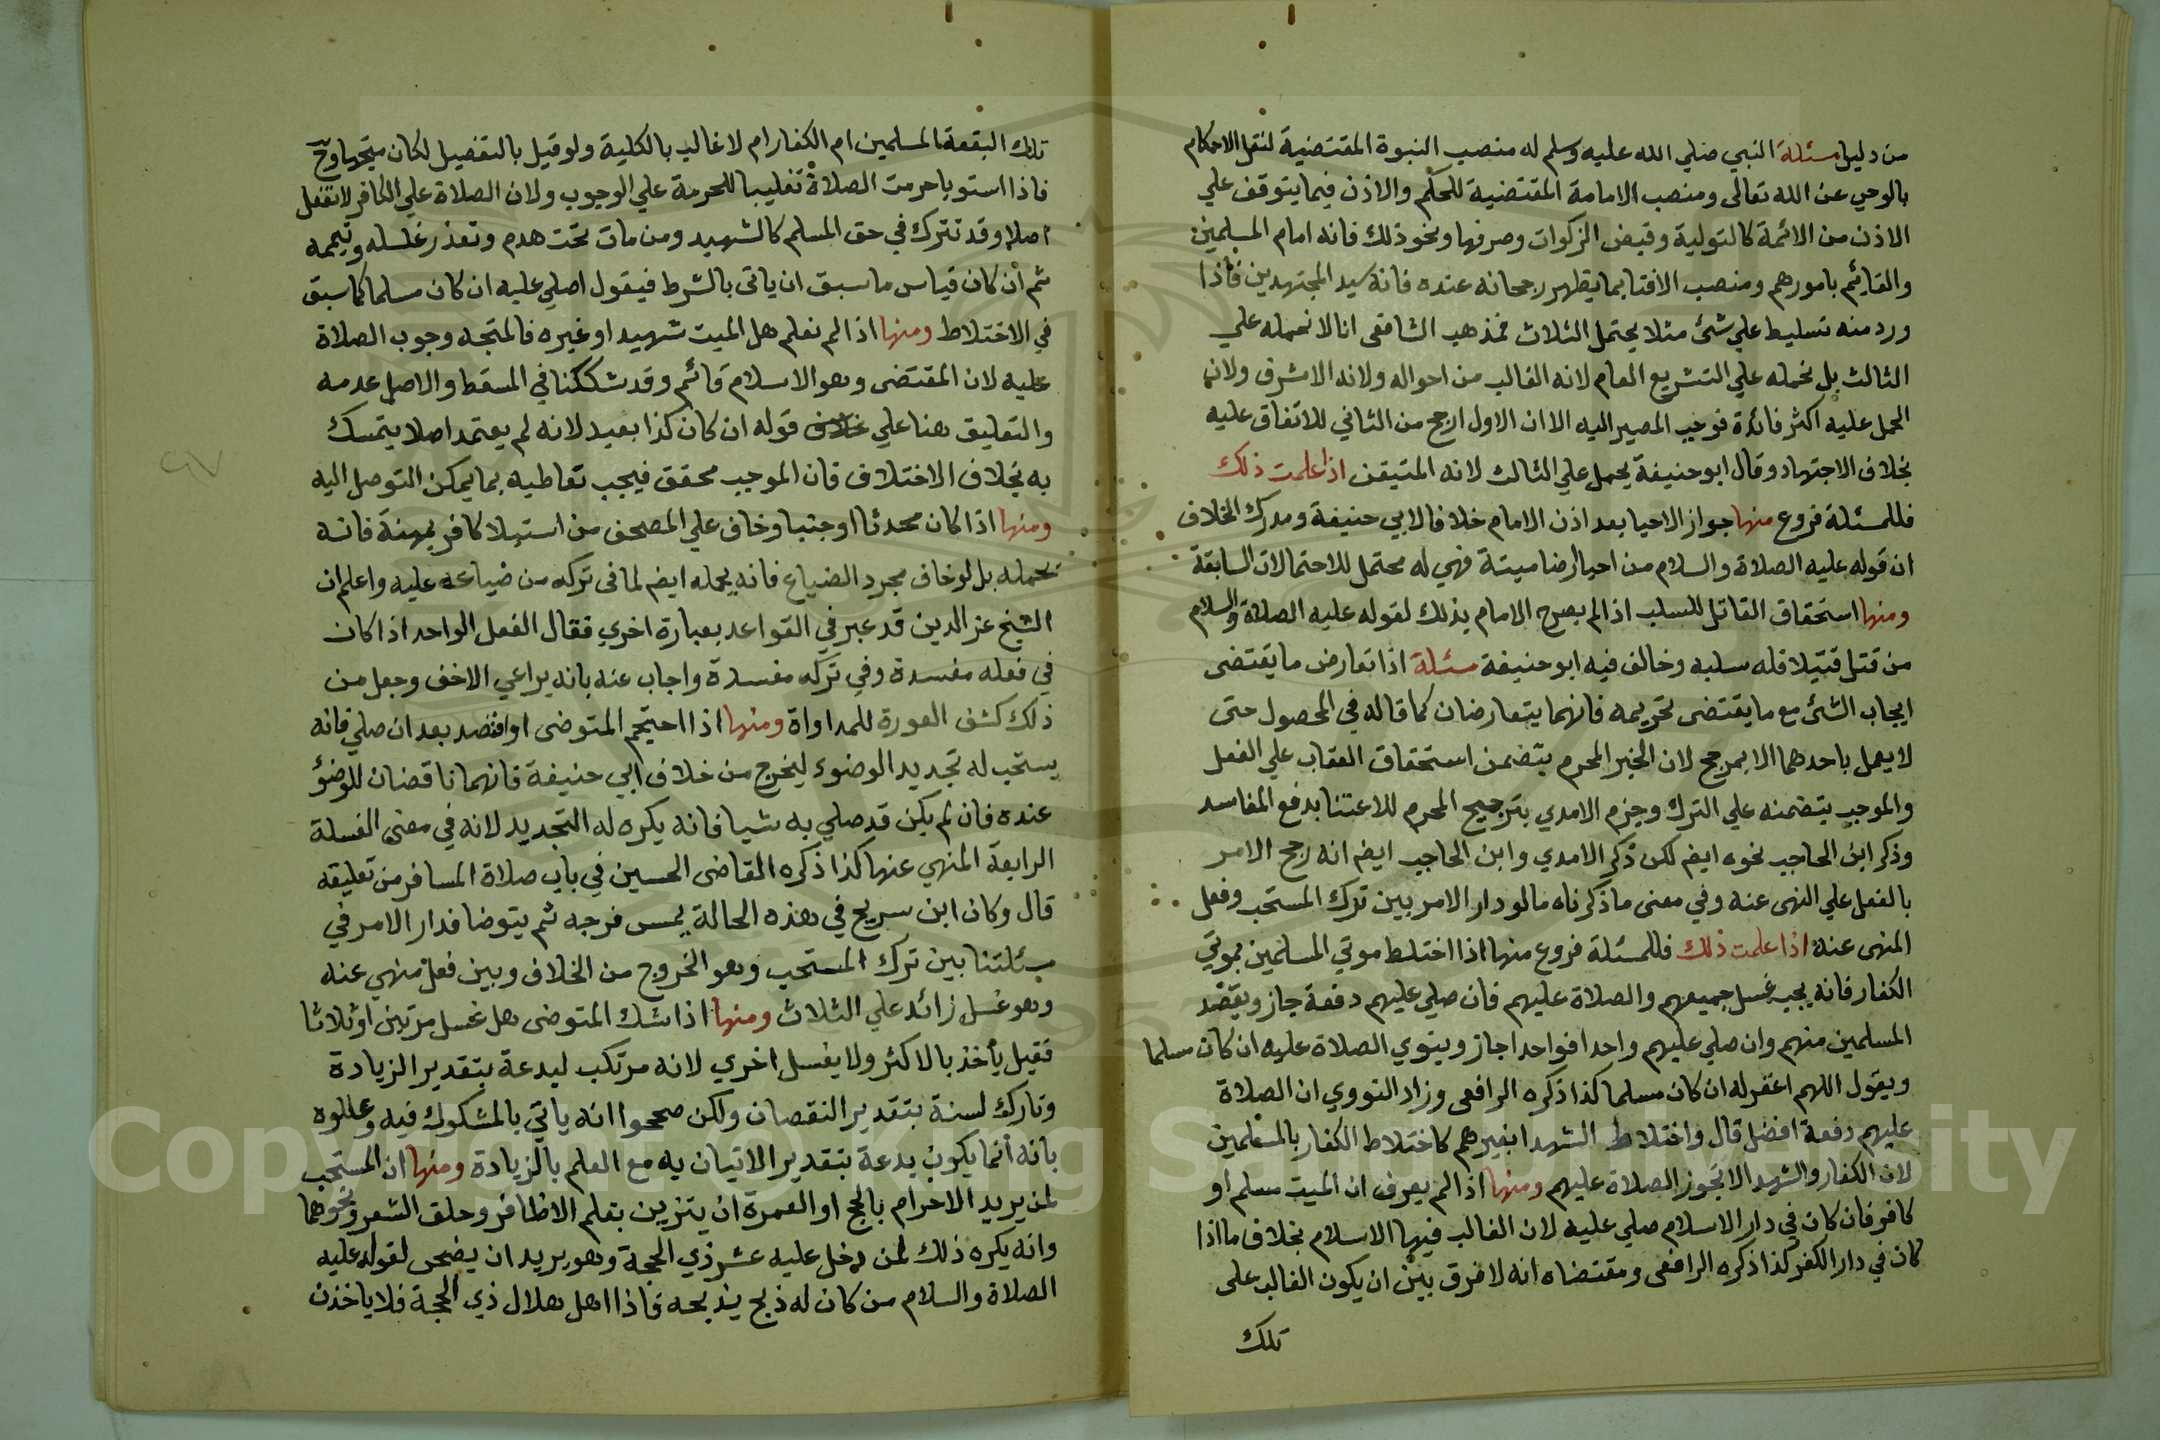 من دليل مسئلة النبي صلي الله عليه وسلم له منصب النبوة المقتضية لنقل الاحكام
بالوحي عن الله تعالى ومنصب الامامة المقتضية للحكم والاذن فيما يتوقف علي
الاذن من الائمة كالتولية وقبض الزكوات وصرفها ونحو ذلك فانه امام المسلمين
والقايم بامورهم ومنصب الافتا بما يظهر رجحانه عنده فانه سيد المجتهدين فاذا
ورد منه تسليط علي شئ مثلا يحتمل الثلاث فمذهب الشافعى انا لا نحمله علي
الثالث بل نحمله علي التشريع العام لانه الغالب من احواله ولانه الاشرف ولان
الحمل عليه اكثر فائدة فوجب المصير اليه الا ان الاول ارجح من الثاني للاتفاق عليه
بخلاف الاجتهاد وقال ابو حنيفة يحمل علي الثالث لانه المتيقن اذا علمت ذلك
فللمسئلة فروع منها جواز الاحيا بعد اذن الامام خلافا لابي حنيفة ومدرك الخلاف
ان قوله عليه الصلاة والسلام من احيا ارضا ميتة فهي له محتمل للاحتمالات السابقة
ومنها استحقاق القاتل للسلب اذا لم يصرح الامام بذلك لقوله عليه الصلاة والسلام
من قتل قتيلا فله سلبه وخالف فيه ابو حنيفة مسئلة اذا تعارض ما يقتضى
ايجاب الشئ مع ما يقتضى تحريمه فانهما يتعارضان كما قاله في المحصول حتى
لا يعمل باحدهما الا بمرجح لان الخبر المحرم يتضمن استحقاق العقاب علي الفعل
والموجب يتضمنه علي الترك وجزم الامدي بترجيح المحرم للاعتنا بدفع المفاسد
وذكر ابن الحاجب نحوه ايضا لكن ذكر الامدي وابن الحاجب ايضا انه رجح الامر
بالفعل علي النهى عنه وفي معنى ما ذكرناه ما لو دار الامر بين ترك المستحب وفعل
المنهى عنه اذا علمت ذلك فللمسئلة فروع منها اذا اختلط موتي المسلمين بموتي
الكفار فانه يجب غسل جميعهم والصلاة عليهم فان صلي عليهم دفعة جاز ويقصد
المسلمين منهم وان صلي عليهم واحدا فواحدا جاز وينوي الصلاة عليه ان كان مسلما
ويقول اللهم اغفر له ان كان مسلما كذا ذكره الرافعى وزاد النووي ان الصلاة
عليهم دفعة افضل قال واختلاط الشهدا بغيرهم كاختلاط الكفار بالمسلمين
لان الكفار والشهدا لا تجوز الصلاة عليهم ومنها اذا لم يعرف ان الميت مسلم او
كافر فان كان في دار الاسلام صلي عليه لان الغالب فيها الاسلام بخلاف ما اذا
كان في دار الكفر كذا ذكره الرافعى ومقتضاه انه لا فرق بين ان يكون الغالب على
تلك
تلك البقعة المسلمين ام الكفار ام لا غالب بالكلية ولو قيل بالتفصيل لكان متجها وح
فاذا استويا حرمت الصلاة تغليبا للحرمة علي الوجوب ولان الصلاة علي الكافر لا تفعل
اصلا وقد تترك في حق المسلم كالشهيد ومن مات تحت هدم وتعذر غسله وتيممه
ثم ان كان قياس ما سبق ان ياتى بالشرط فيقول اصلي عليه ان كان مسلما كما سبق
في الاختلاط ومنها اذا لم نعلم هل الميت شهيد او غيره فالمتجه وجوب الصلاة
عليه لان المقتضى وهو الاسلام قائم وقد شككنا في المسقط والاصل عدمه
والتعليق هنا علي خلاف قوله ان كان كذا بعيد لانه لم يعتمد اصلا يتمسك
به بخلاف الاختلاف فان الموجب محقق فيجب تعاطيه بما يمكن التوصل اليه
ومنها اذا كان محدثا او جنبا وخاف علي المصحف من استيلا كافر يمهنة فانه
يحمله بل لو خاف مجرد الضياع فانه يحمله ايضا لما فى تركه من ضياعه عليه واعلم ان
الشيخ عز الدين قد عبر في القواعد بعبارة اخري فقال الفعل الواحد اذا كان
في فعله مفسدة وفي تركه مفسدة واجاب عنه بانه يراعي الاخف وجعل من
ذلك كشف العورة للمداواة ومنها اذا احتجم المتوضى او افتصد بعد ان صلي فانه
يستحب له تجديد الوضوء ليخرج من خلاف ابي حنيفة فانهما ناقضان للوضؤ
عنده فان لم يكن قد صلي به شيا فانه يكره له التجديد لانه في معنى الغسلة
الرابعة المنهي عنها كذا ذكره القاضى الحسين في باب صلاة المسافر من تعليقه
قال وكان ابن سريج في هذه الحالة يمس فرجه ثم يتوضا فدار الامر في
مسئلتنا بين ترك المستحب وهو الخروج من الخلاف وبين فعل منهي عنه
وهو غسل زائد علي الثلاث ومنها اذا شك المتوضى هل غسل مرتين او ثلاثا
فقيل يأخذ بالاكثر ولا يغسل اخري لانه مرتكب لبدعة بتقدير الزيادة
وتارك لسنة بتقدير النقصان ولكن صححوا انه ياتي بالمشكوك فيه وعللوه
بانه انما يكون بدعة بتقدير الاتيان به مع العلم بالزيادة ومنها ان المستحب
لمن يريد الاحرام بالحج او العمرة ان يتزين بقلم الاظافر وحلق الشعر ونحوهما
وانه يكره ذلك لمن دخل عليه عشر ذي الحجة وهو يريد ان يضحى لقوله عليه
الصلاة والسلام من كان له ذبح يذبحه فاذا اهل هلال ذي الحجة فلا ياخذن
٤٧
Copyright © King Saud University